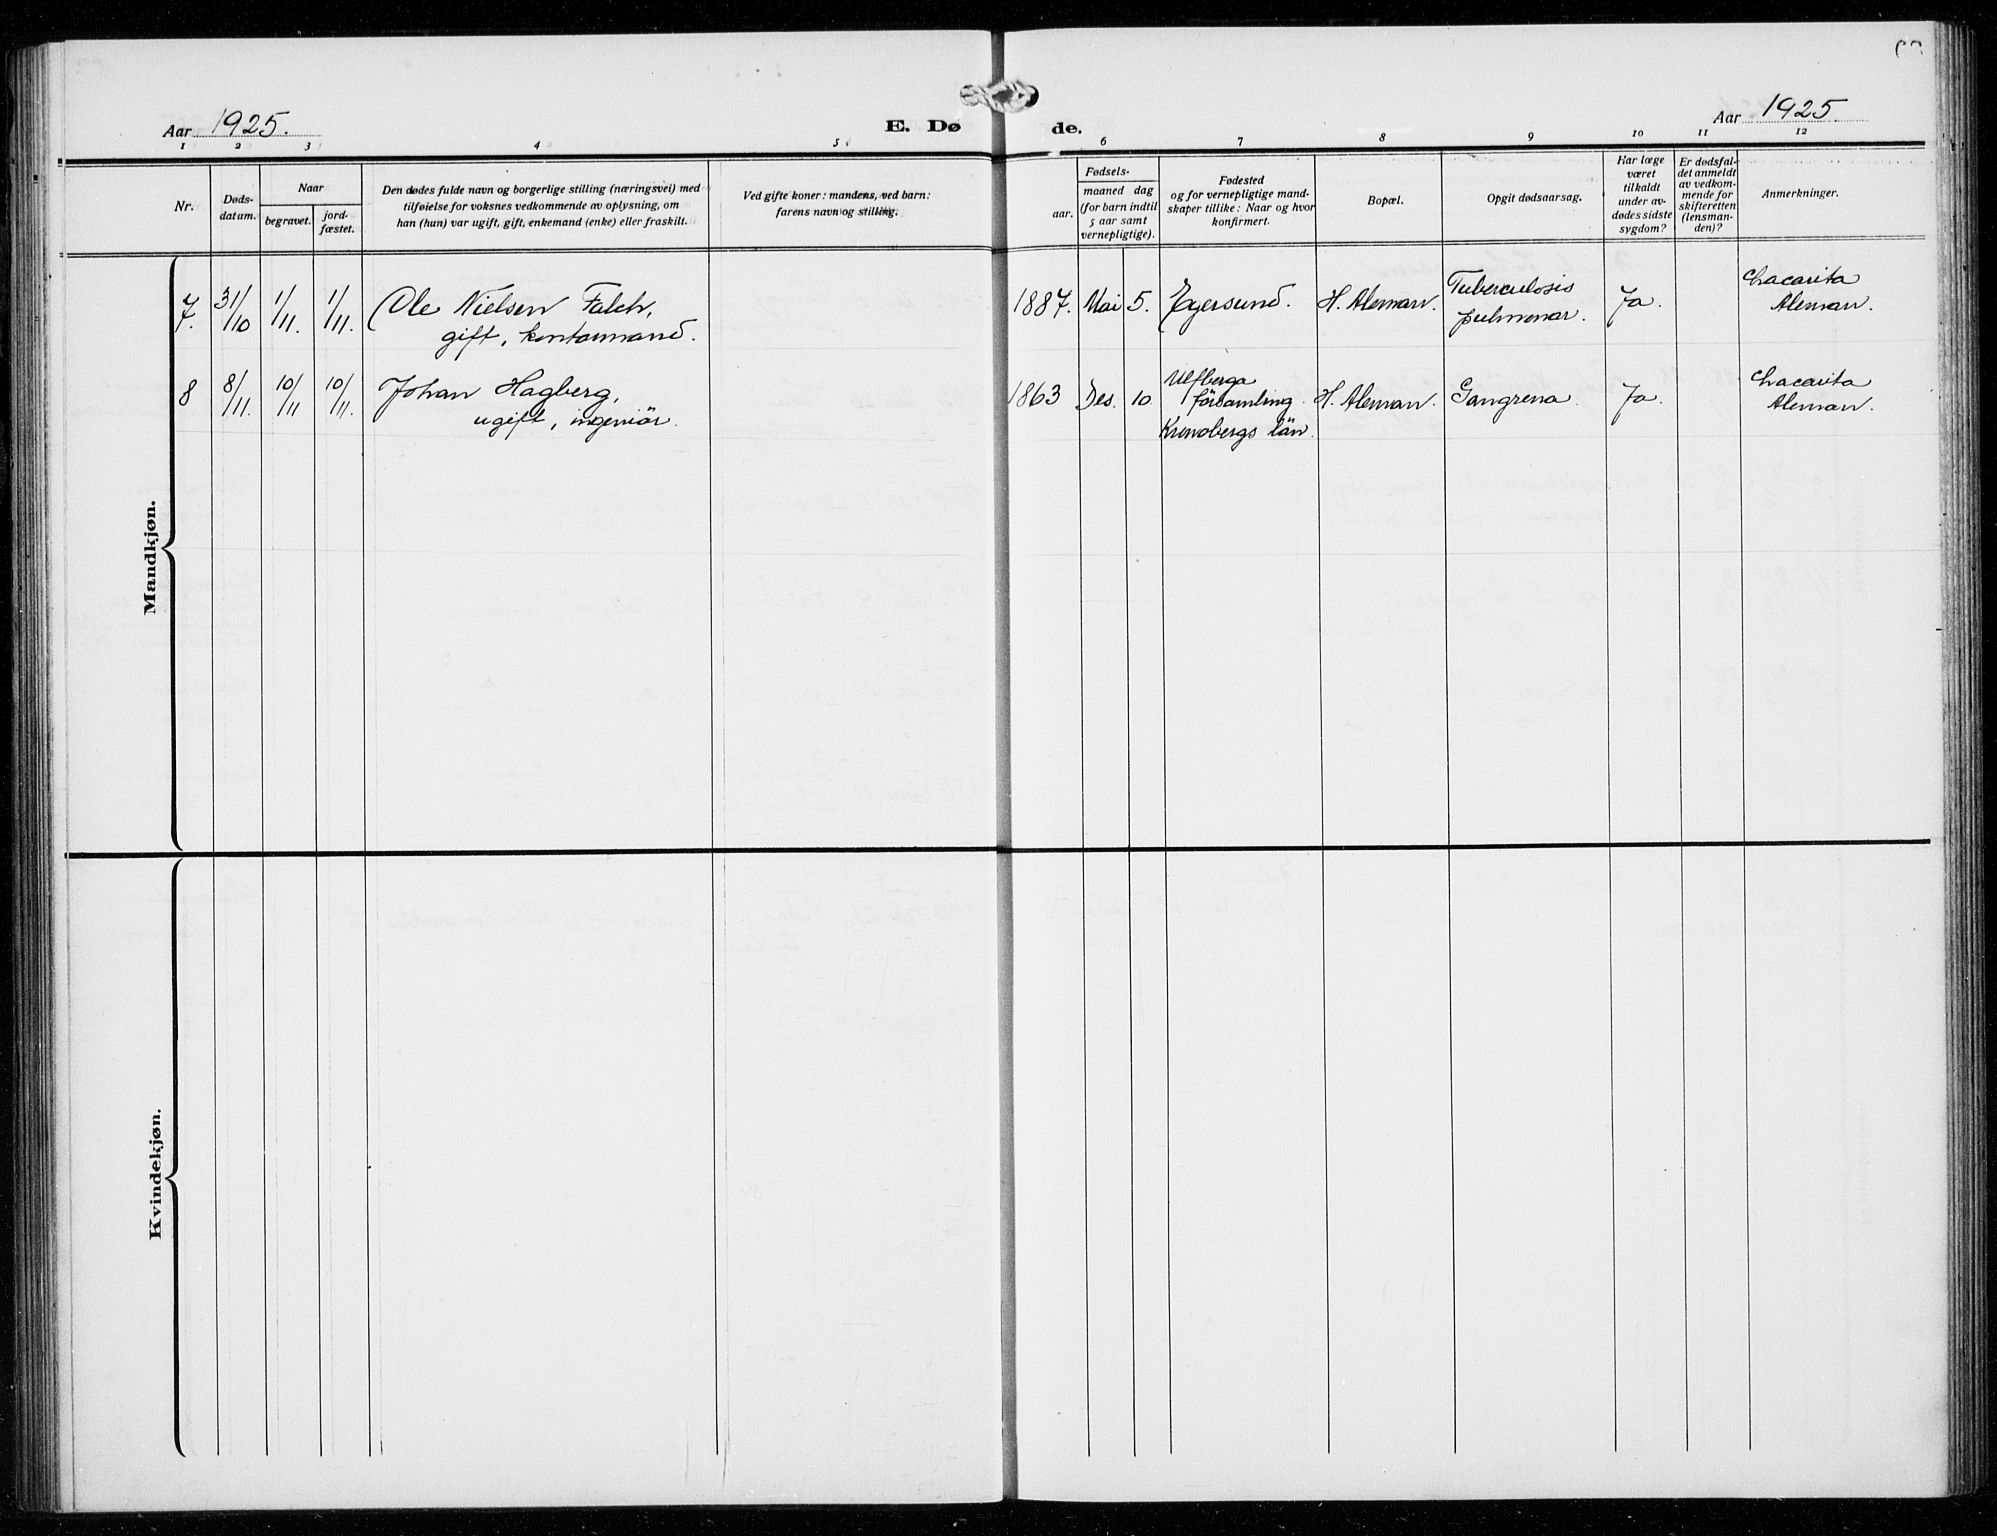 Aar 1925.
E. Døde.
Aar 1925.
1 2 3 4 5 6 7 8 9 10 11 12
Nr.
Døds-
datum.
Naar
begravet.
jord-
fæstet.
Den dødes fulde navn og borgerlige stilling (næringsvei) med
tilføielse for voksnes vedkommende av oplysning, om
han (hun) var ugift, gift, enkemand (enke) eller fraskilt.
Ved gifte koner: mandens, ved barn:
farens navn og stilling.
Fødsels-
aar.
maaned dag
(for barn indtil
5 aar samt
vernepligtige).
Fødested
og for vernepligtige mand-
skaper tillike: Naar og hvor
konfirmert.
Bopæl.
Opgit dødsaarsag.
Har læge
været
tilkaldt
under av-
dødes sidste
sygdom?
Er dødsfal-
det anmeldt
av vedkom-
mende for
skifteretten
(lensman-
den)?
Anmerkninger.
Mandkjøn.
7. 31/10 1/11. 1/11. Ole Nielsen Falch, 1887. Mai 5. Egersund. H. Aleman. Tuberculosis Ja. Chacarita
gift, kontormand. pulmonar. Aleman.
8 8/11. 10/11 10/11. Johan Hagberg, 1863 Des. 10. Ulfberga H. Aleman. Gangrena. Ja. Chacarita
ugift, ingeniör. församling. Aleman.
Kronobergs län.
Kvindekjøn.